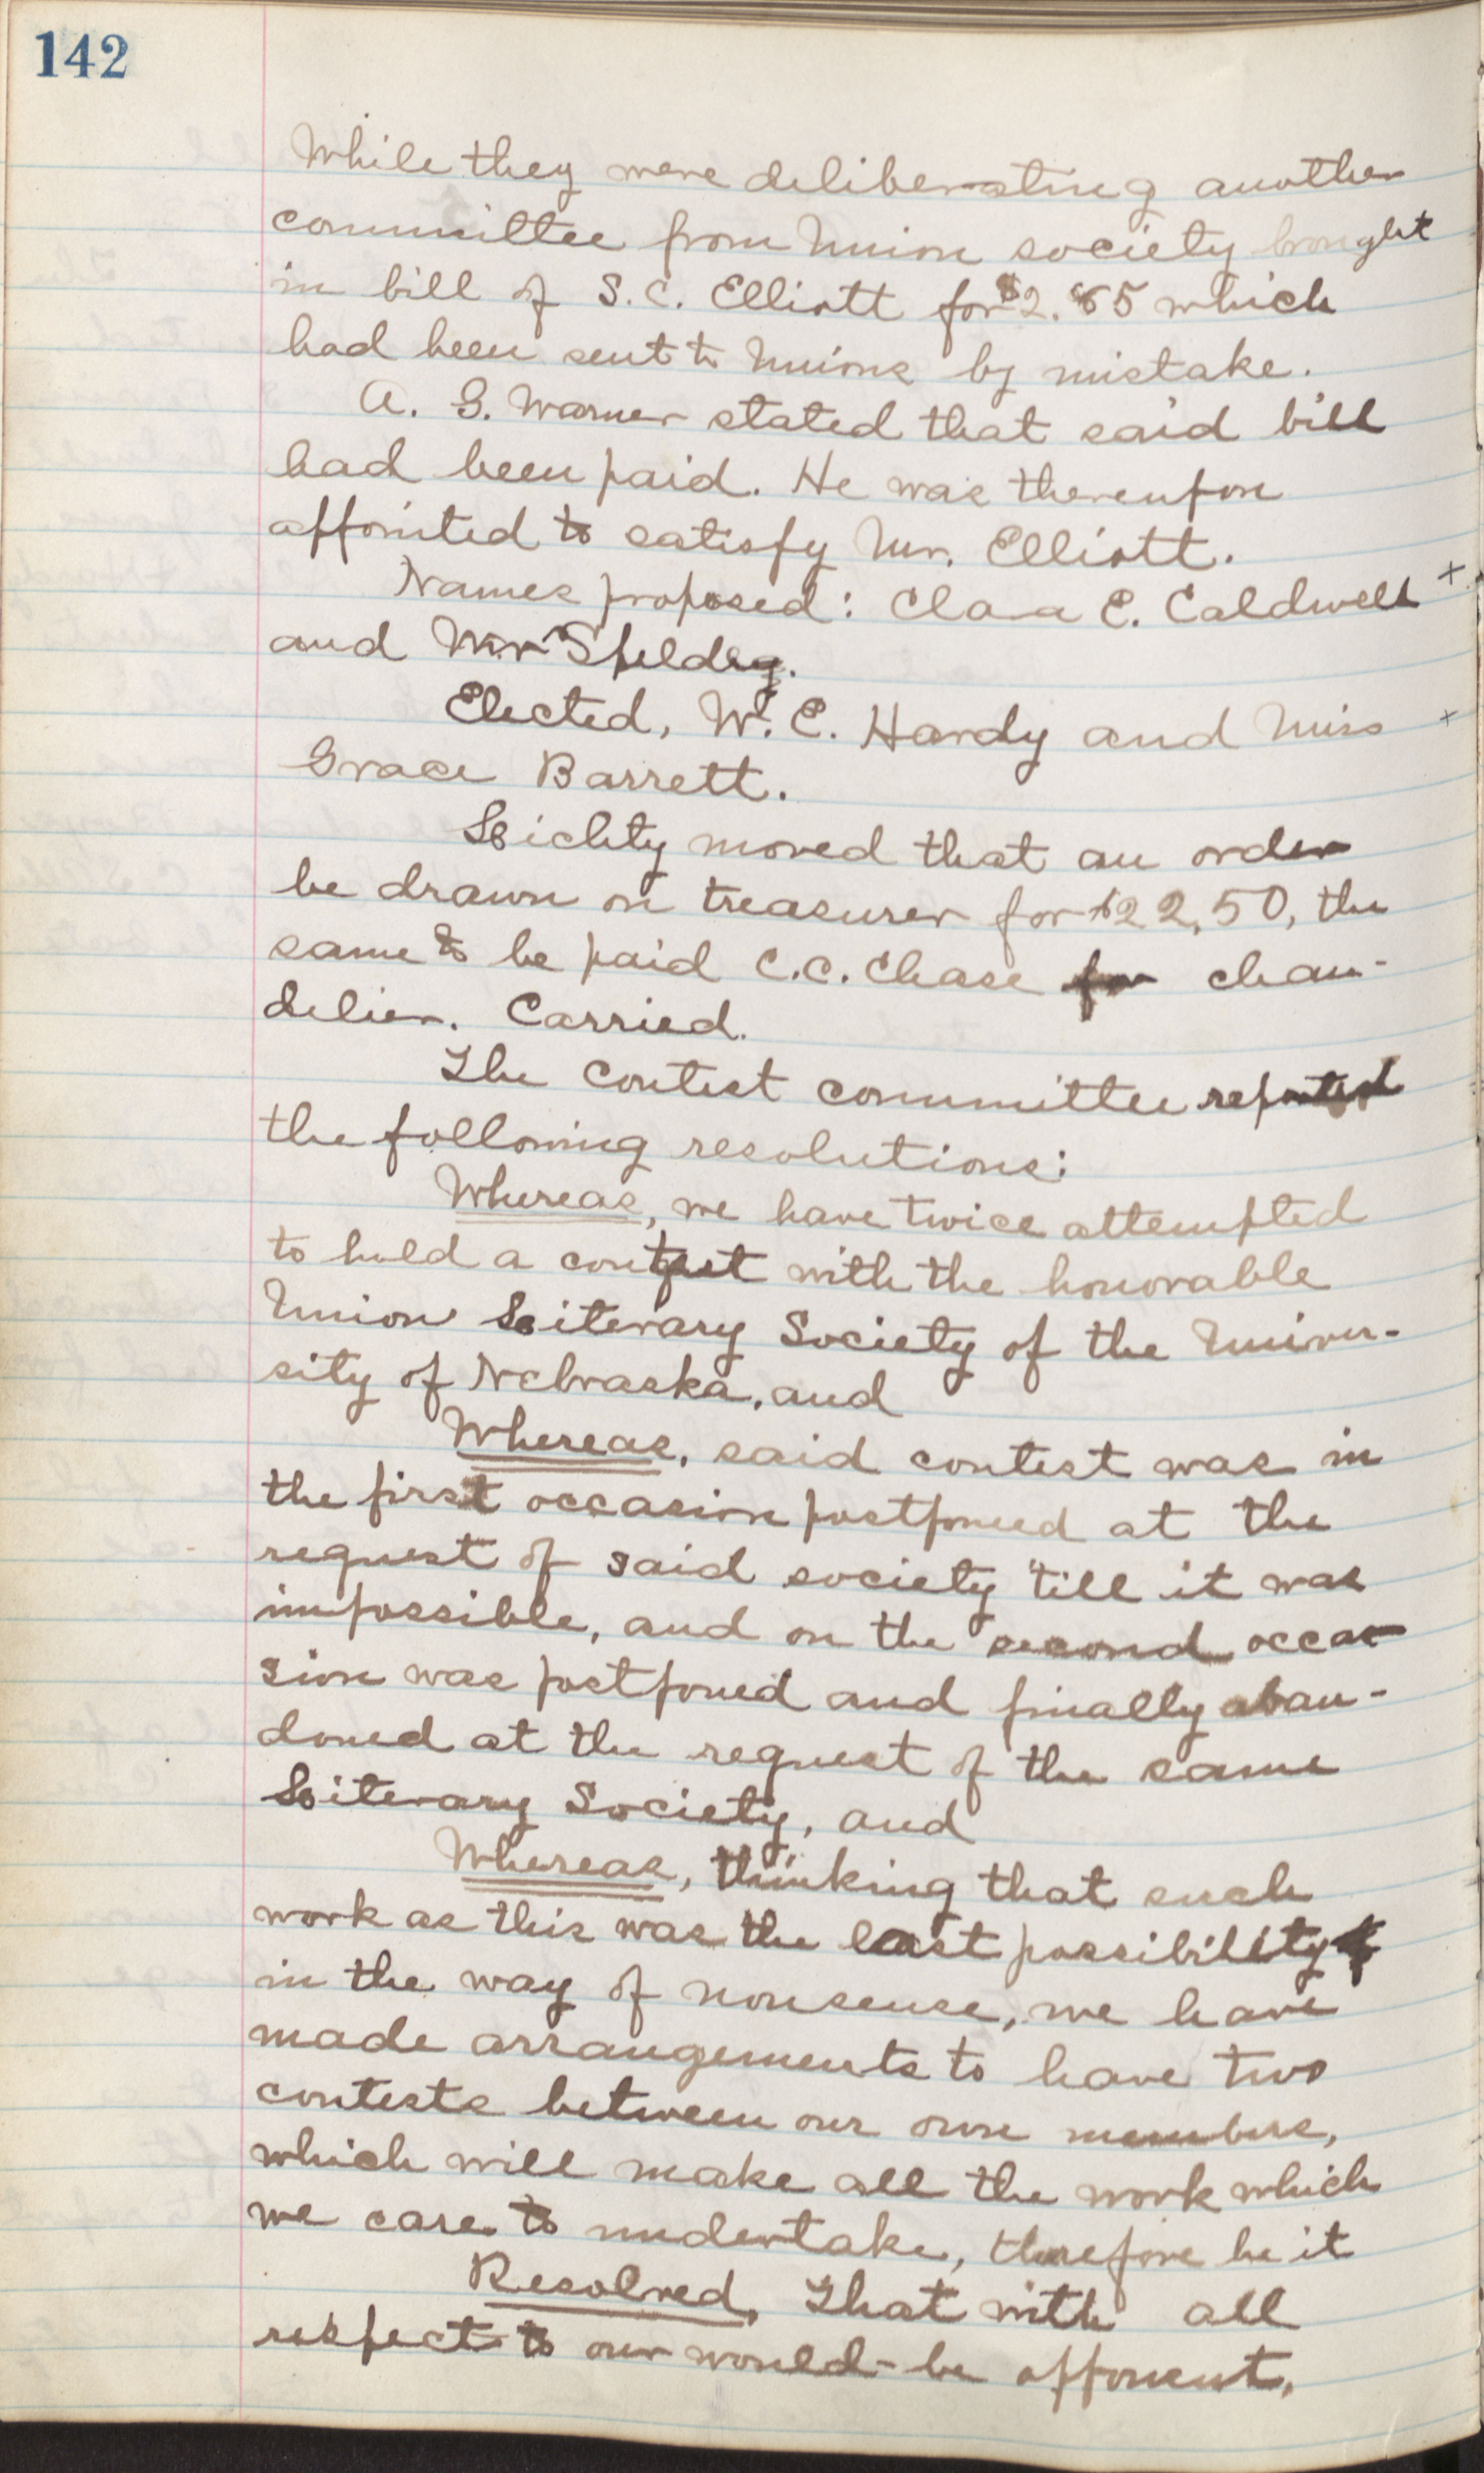 142
While they were deliberating another
committee from Union society brought
in bill of S. C. Elliott for $2.65 which
had been sent to Unions by mistake.
A. G. Warner stated that said bill
had been paid. He was thereupon
appointed to satisfy Mr. Elliott.
Names proposed: Clara E. Caldwell +
and Mr
Elected, W. E. Hardy and Miss +
Grace Barrett.
Lichty moved that an order
be drawn on treasurer for $22,50, the
same to be paid C.C. Chase for chan-
delier. Carried.
The contest committee reported
the following resolutions:
Whereas, we have twice attempted
to hold a contest with the honorable
Union Literary Society of the Univer-
sity of Nebraska, and
Whereas, said contest was in
the first occasion postponed at the
request of said society till it was
impossible, and on the second occa-
sion was postponed and finally aban-
doned at the request of the same
Literary Society, and
Whereas, thinking that such
work as this was the last possibility
in the way of nonsense, we have
made arrangements to have two
contests between our own members,
which will make all the work which
we care to undertake, therefore be it
Resolved, That with all
respect to our would-be opponent,